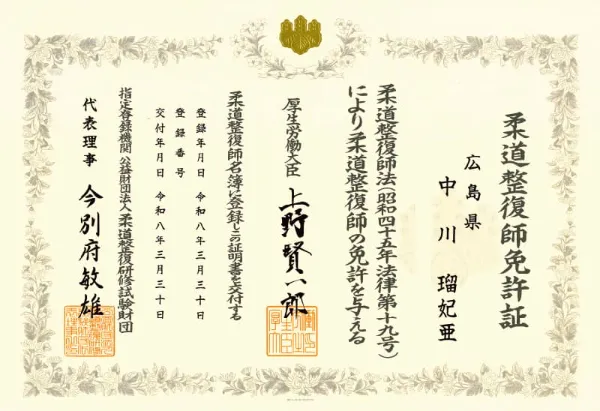 柔道整復師免許証
広島県
中川瑠妃亜
柔道整復師法(昭和四十五年法律第十九号)
により柔道整復師の免許を与える
厚生労働大臣 上野賢一郎
柔道整復師名簿に登録しこの証明書を交付する
登録年月日 令和八年三月三十日
登録番号
交付年月日 令和八年三月三十日
指定登録機関 公益財団法人柔道整復研修試験財団
代表理事 今別府敏雄